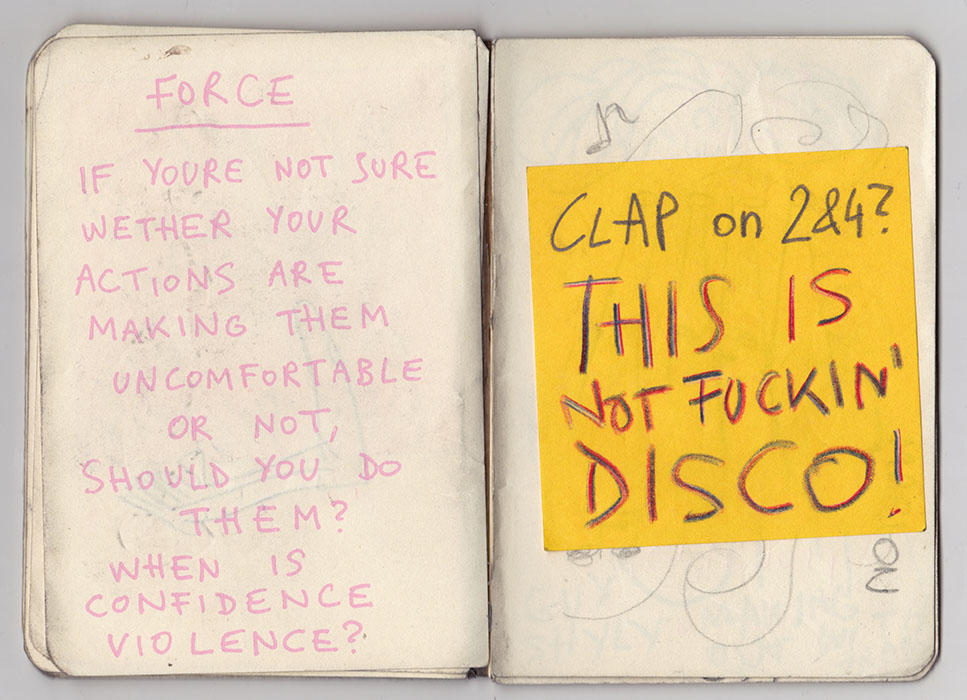 FORCE
IF YOURE NOT SURE
WETHER YOUR
ACTIONS ARE
MAKING THEM
UNCOMFORTABLE
OR NOT,
SHOULD YOU DO
THEM?
WHEN IS
CONFIDENCE
VIOLENCE?
CLAP on 2&4?
THIS IS
NOT FUCKIN'
DISCO!
ON